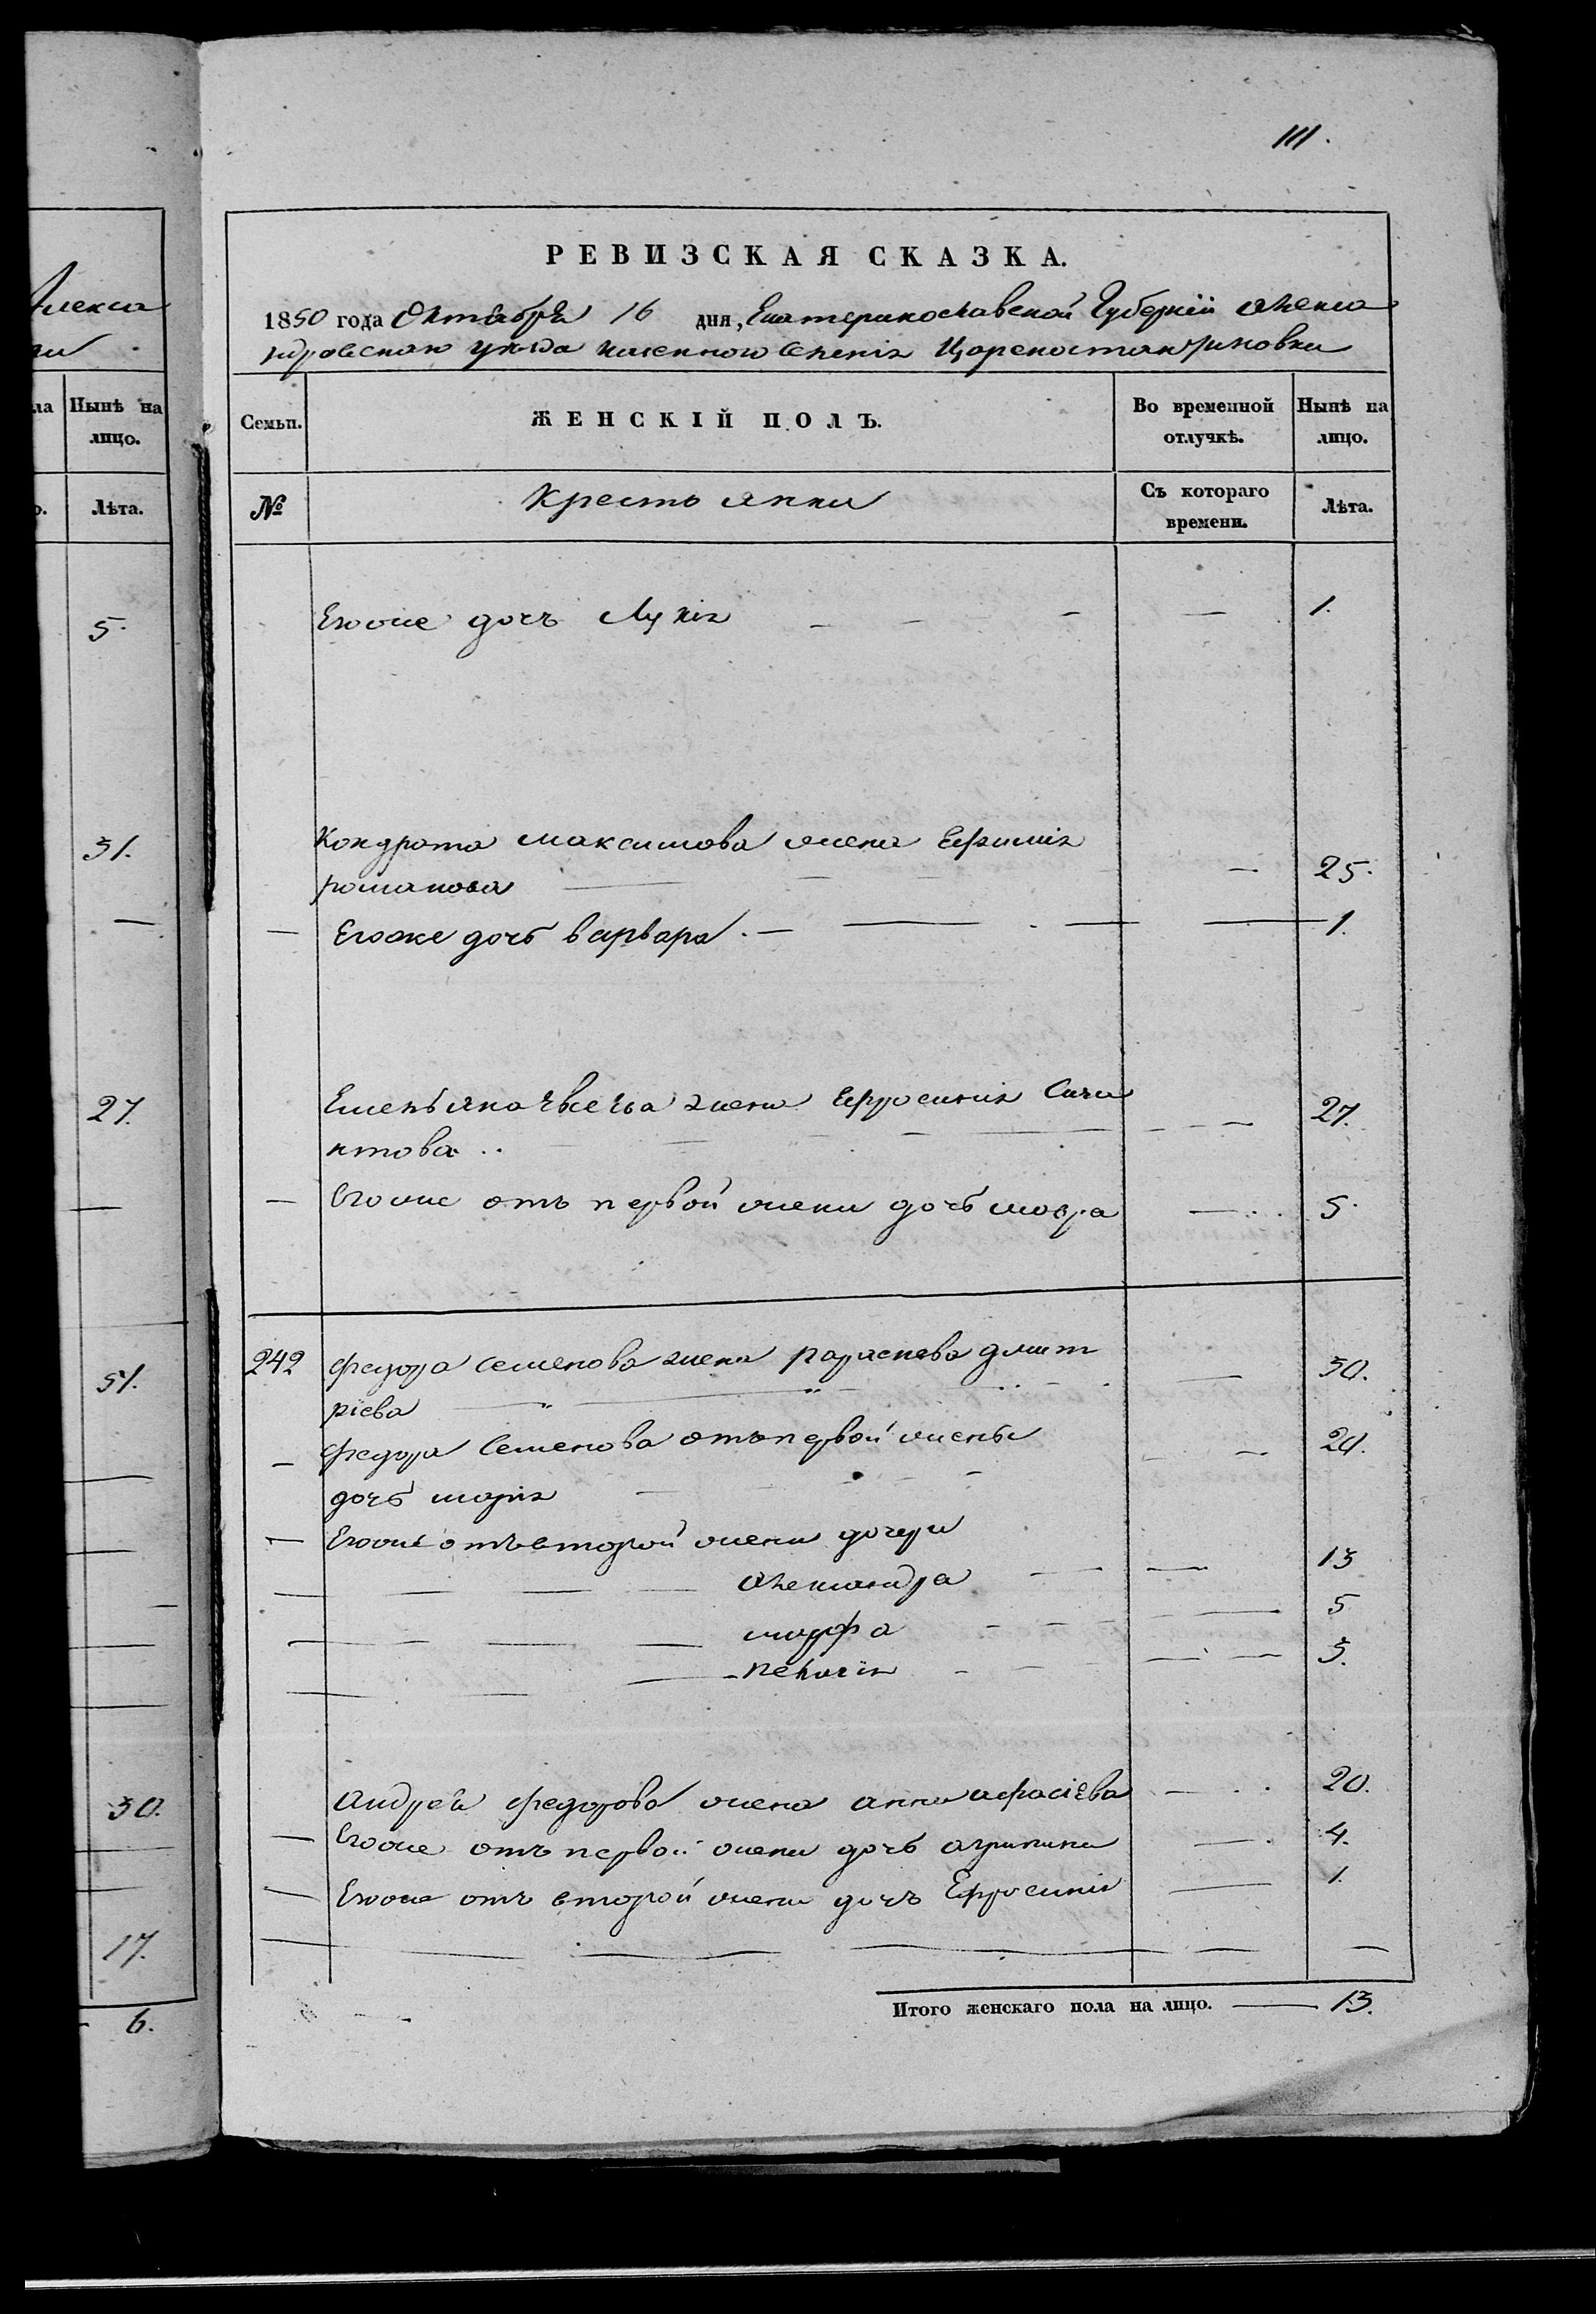 111.
РЕВИЗСКАЯ СКАЗКА.
1850 года Октября 16 дня, Екатеринославской Губернїи Алекса
ндровскаго уезда казенного Селенія Цареконстантиновки
Семьи.
ЖЕНСКІЙ ПОЛЪ.
Во временной отлучкѣ.
Нынѣ на лицо.
№
Крестьянки
Съ котораго времени.
Лѣта.
Егоже дочь Лукія — — — — 1.
Кондрата Максимова жена Ефимія
романова — — — — 25.
— Егоже дочь варвара. — — — — 1.
Емельяна жена Ефросинія
нтова — — — 27.
— Егоже отъ первой жены дочь мавра — 5.
242 федора Семенова жена параскева дмит
ріева — — — 30.
— федора Семенова отъ первой жены
дочь марія — — 24.
— Егоже отъ второй жены дочери
— — — Александра — — 13
— — — марфа — — 5
— — — пелагія — — 3.
Андрея федорова жена анна — 20.
— Егоже отъ первой жены дочь агрипина — 4.
— Егоже отъ второй жены дочь Ефросинія — 1.
— — — — — —
Итого женскаго пола на лицо. — 13.
Алекса
ла
Нынѣ на лицо.
Лѣта.
5.
31.
—
27.
—
51.
—
30.
17.
6.